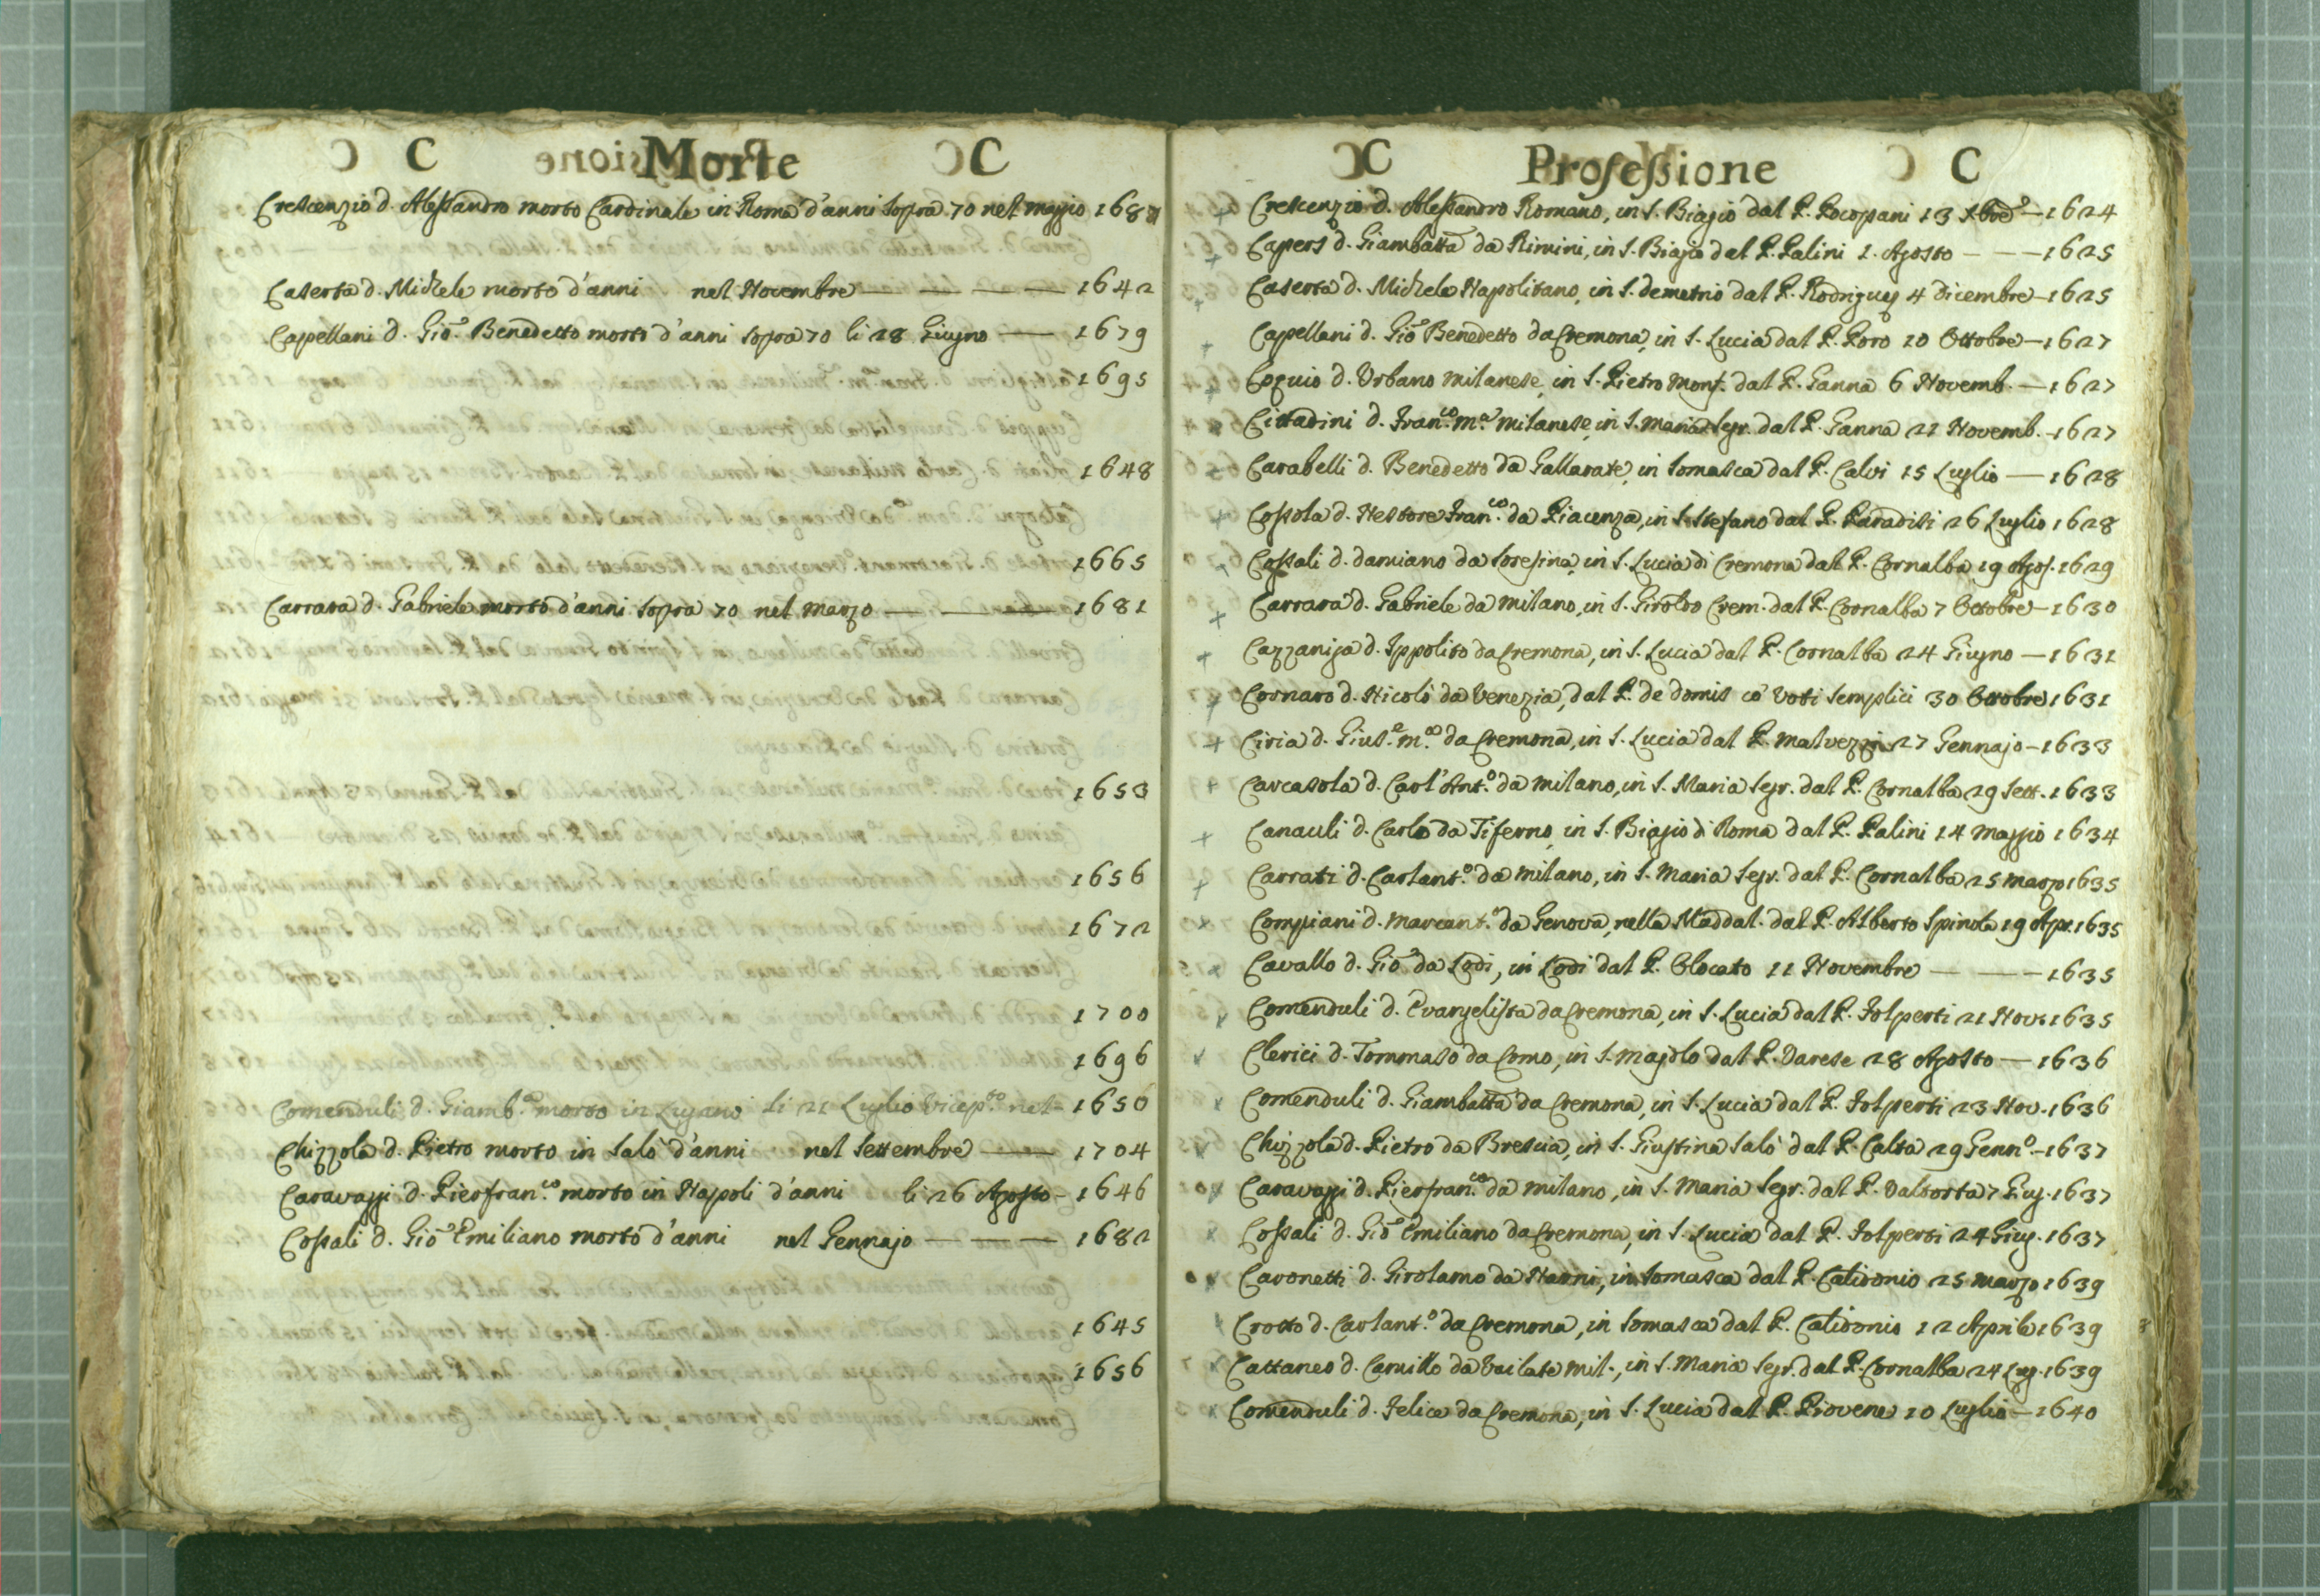 C Morte C
Crescenzio d. Alessandro morto Cardinale in Roma d'anni sopra 70 nel maggio 168
Caserta d. Michele morto d'anni nel Novembre — — — — 1642
Capellani d. Gio. Benedetto morto d'anni sopra 70 li 28 Giugno — 1679
1695
1648
1665
Carrara d. Gabriele morto d'anni sopra 70 nel marzo — — — 1681
1653
1656
1672
1700
1696
Comenduli d. Giamb.a morto in Lugano li 21 Luglio nel 1650
Chizzola d. Pietro morto in Salò d'anni nel Settembre — 1704
Caravaggi d. Pierfran.co morto in Napoli d'anni li 26 Agosto - 1646
Cossali d. Gio Emiliano morto d'anni nel Gennajo — — — 1682
1645
1656
C Professione C
Crescenzio d. Alessandro Romano, in S. Biagio dal P. Bocopani 13 Xbre — 1624
d. Giambatta da Rimini, in S. Biagio dal P. Palini 1. Agosto — — — 1625
Caserta d. Michele Napolitano, in S. demetrio dal P. Rodriguez 4 dicembre — 1625
Capellani d. Gio Benedetto da Cremona, in S. Lucia dal P. Poro 10 Ottobre — 1627
Coquio d. Urbano milanese, in S. Pietro Monf. dal P. Ganna 6 Novemb. — 1627
Cittadini d. Fran.co m.a milanese, in S. maria segr. dal P. Ganna 21 Novemb. - 1627
Carabelli d. Benedetto da Gallarate, in Somasca dal P. Calvi 15 Luglio — 1628
Cossola d. Nestore Fran.co da Piacenza, in S. Stefano dal P. Paradisi 26 Luglio 1628
Cossali d. damiano da Soresina, in S. Lucia di Cremona dal P. Cornalba 19 Agos. 1629
Carrara d. Gabriele da milano, in S. Girol.o Crem. dal P. Cornalba 7 Ottobre — 1630
Cazzaniga d. Ippolito da Cremona, in S. Lucia dal P. Cornalba 24 Giugno — 1631
Cornaro d. Nicolò da Venezia, dal P. de domis cō voti semplici 30 Ottobre 1631
Ciria d. Gius.e m.a da Cremona, in S. Lucia dal P. malvezzi 27 Gennajo - 1633
Carcasola d. Carl'Ant.o da milano, in S. Maria segr. dal P. Cornalba 29 Sett. 1633
Canauli d. Carlo da Tiferno, in S. Biagio di Roma dal P. Palini 14 maggio 1634
Carrati d. Carlant.o da milano, in S. Maria segr. dal P. Cornalba 25 marzo 1635
Compiani d. marcant.o da Genova, nella Maddal. dal P. Alberto Spinola 19 Apr. 1635
Cavallo d. Gio da Lodi, in Lodi dal P. Olocato 11 Novembre — — — 1635
Comenduli d. Evangelista da Cremona, in S. Lucia dal P. Folperti 21 Nov. 1635
Clerici d. Tommaso da Como, in S. majolo dal P. Varese 28 Agosto — 1636
Comenduli d. Giambatta da Cremona, in S. Lucia dal P. Folperti 23 Nov. 1636
Chizzola d. Pietro da Brescia, in S. Giustina Salò dal P. Calta 29 Genn.o - 1637
Caravaggi d. Pierfran.co da milano, in S. Maria segr. dal P. Valtorta 7 Giug. 1637
Cossali d. Gio Emiliano da Cremona, in S. Lucia dal P. Folperti 24 Giug. 1637
Caronetti d. Girolamo da Narni, in Somasca dal P. Calidonio 25 marzo 1639
Crotto d. Carlant.o da Cremona, in Somasca dal P. Calidonio 12 Aprile 1639
Cattaneo d. Camillo da Vailate mil., in S. Maria segr. dal P. Cornalba 24 Lug. 1639
Comenduli d. Felice da Cremona, in S. Lucia dal P. Piovene 10 Luglio — 1640